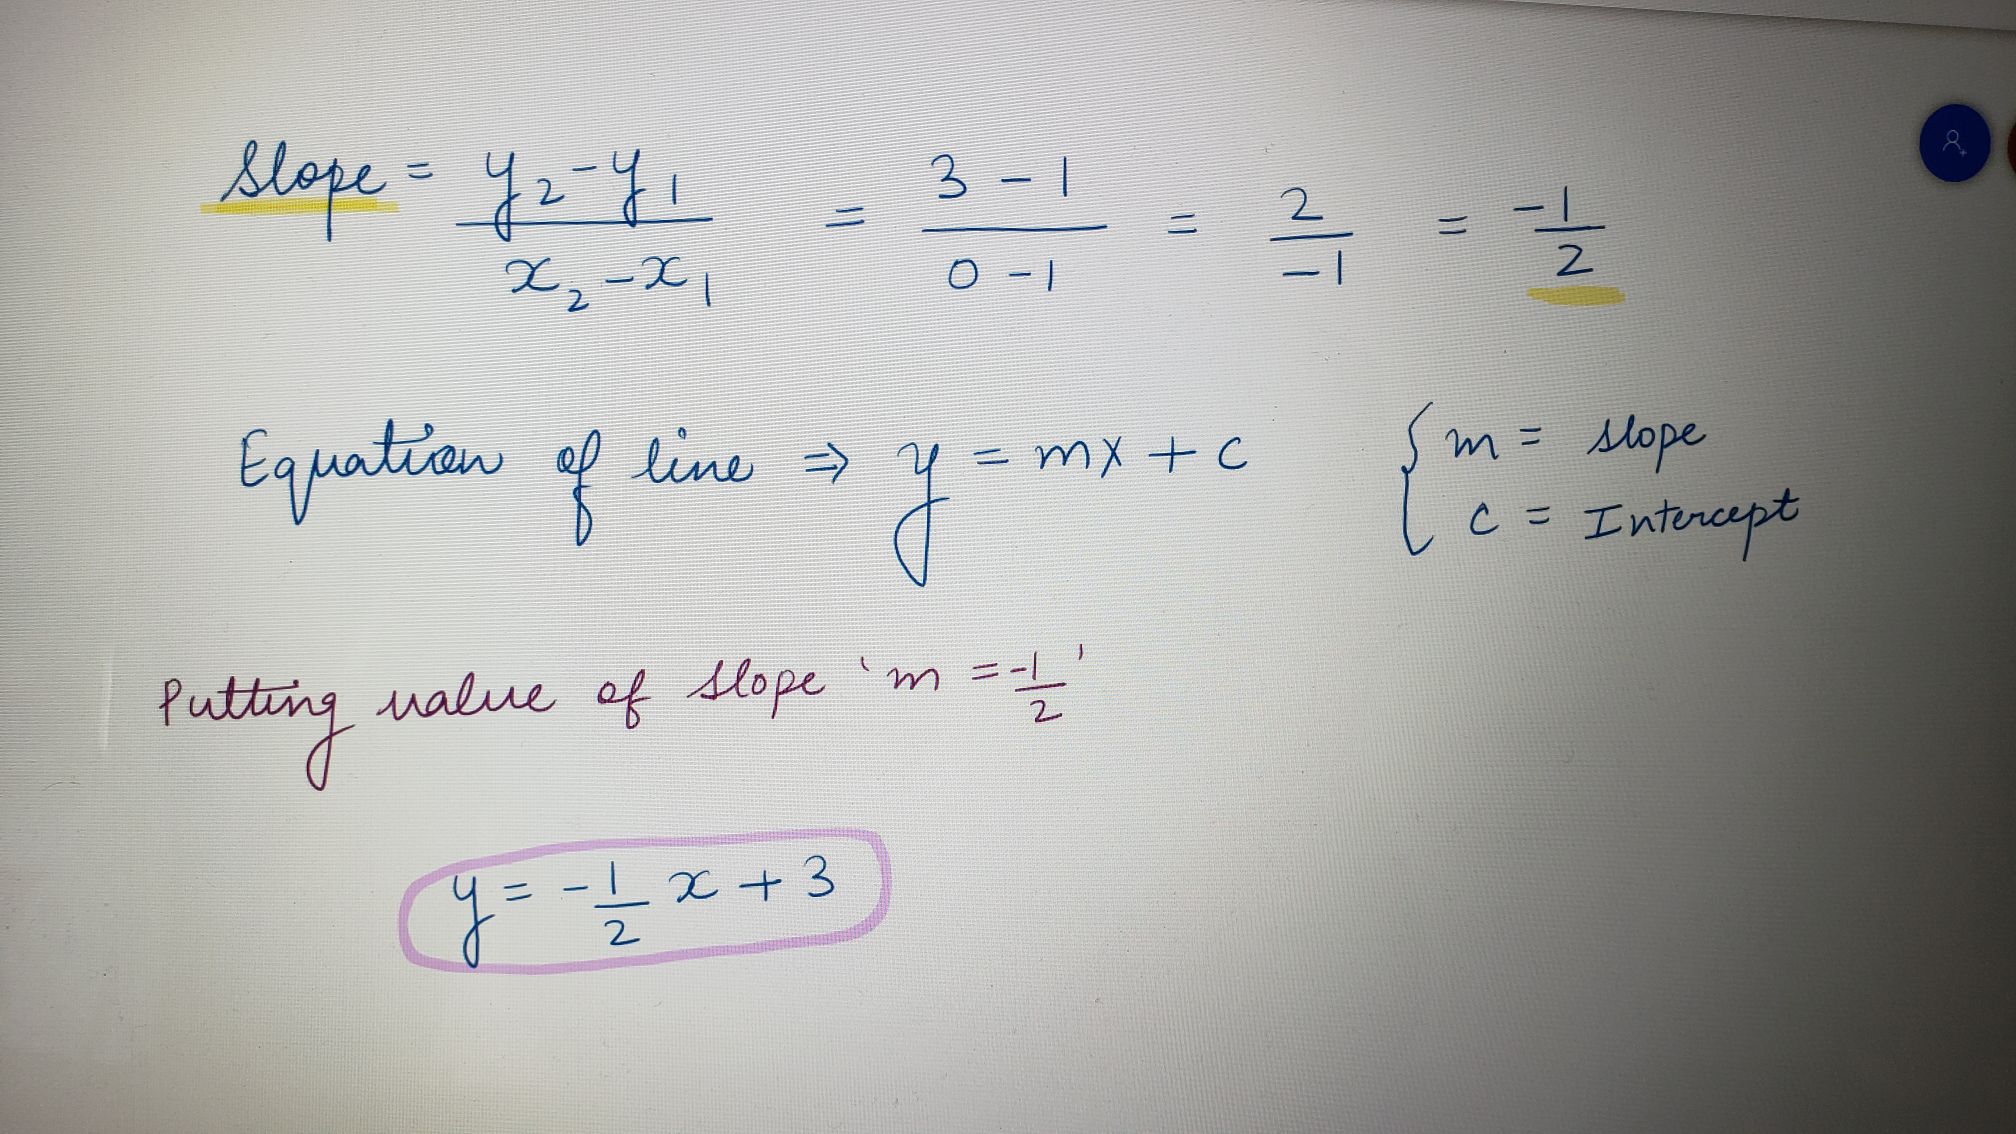 Slope = y₂-y₁/x₂-x₁ = 3-1/0-1 = 2/-1 = -1/2
Equation of line ⇒ y = mx + c { m = slope
c = Intercept
Putting value of slope 'm = -1/2'
y = -1/2 x + 3